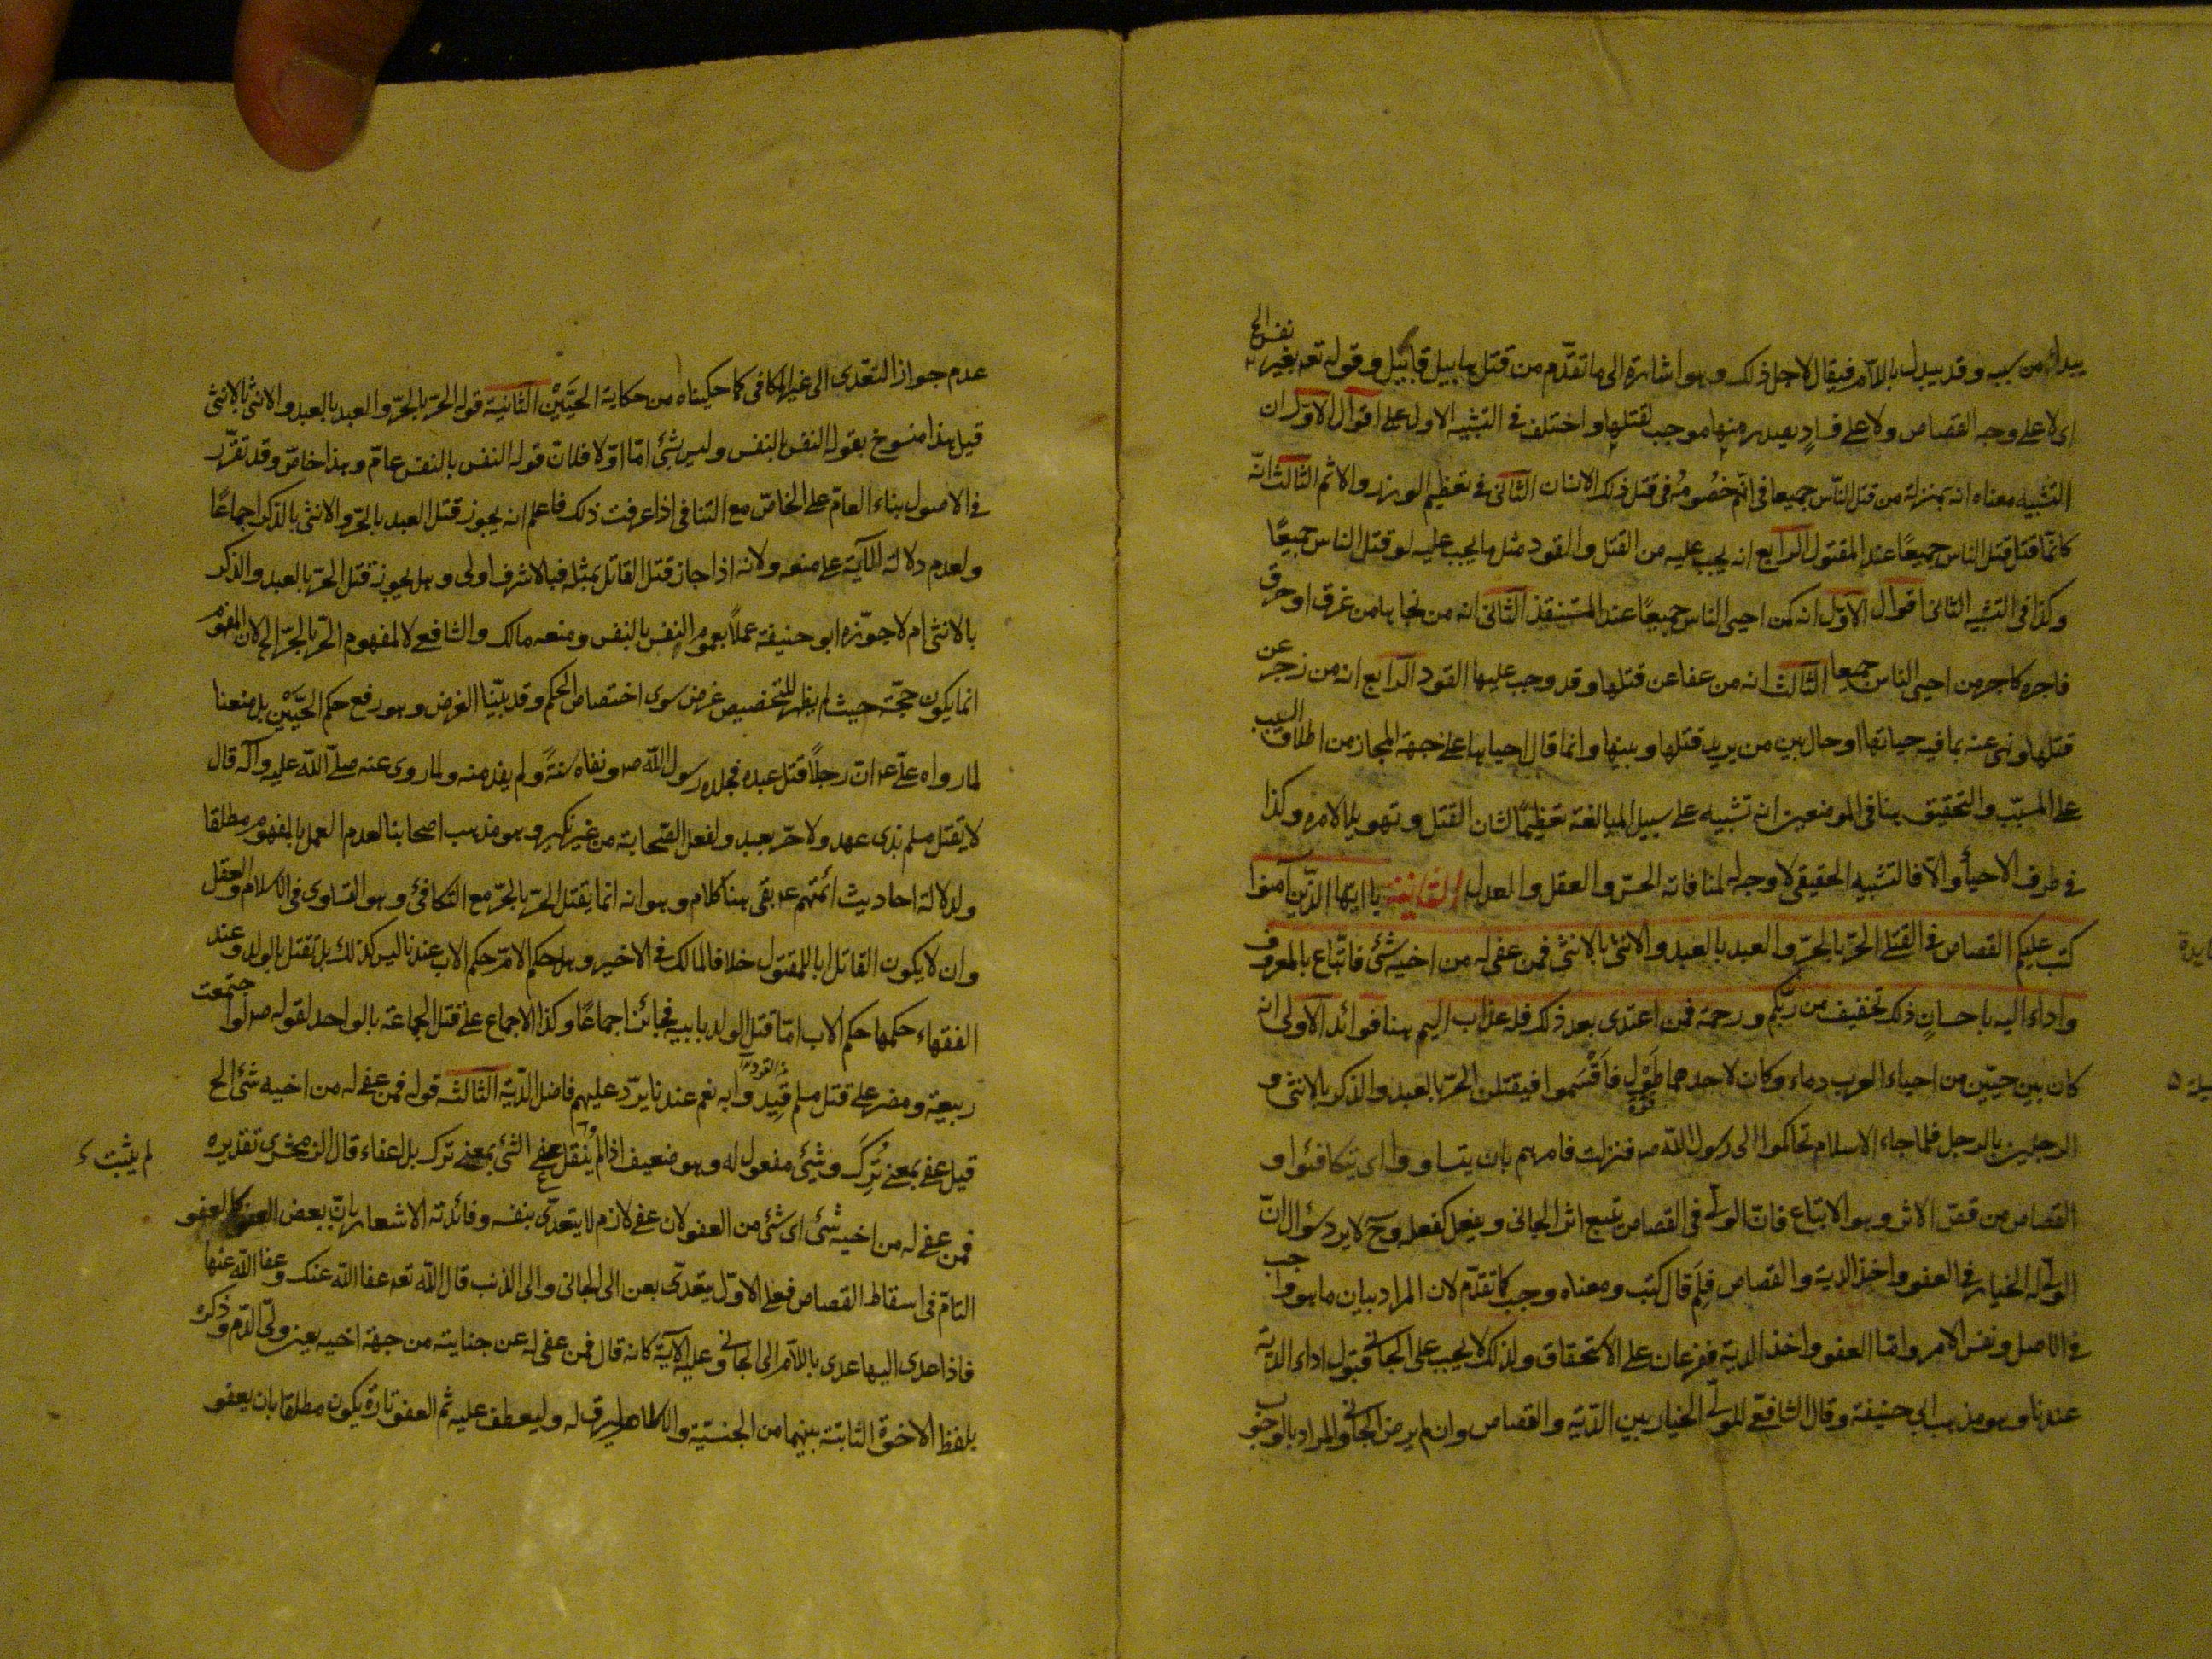 يبدأ من سببه وقد يبدل باللام فيقال لاجل ذلك وهو اشارة الى ما تقدّم من قتل هابيل قابيل وقوله تعه بغير نفس الخ
اى لا على وجه القصاص ولا على فساد يصدر منها موجب لقتلها واختلف فى التشبيه الاول على اقوال الاوّل ان
التشبيه معناه انه بمنزلة من قتل النّاس جميعا فى انّهم خصومه فى قتل ذلك الانسان الثانى فى تعظيم الوزر والاثم الثالث انّه
كانّما قتل قتل الناس جميعًا عند المقتول الرابع انه يجب عليه من القتل والقود مثل ما يجب عليه لو قتل الناس جميعًا
وكذا فى التشبيه الثانى اقوال الاوّل انه كمن احيى الناس جميعًا عند المستنقذ الثانى انه من نجا بها من غرق او حرق
فاجره كاجر من احيى الناس جميعا الثالث انه من عفا عن قتلها وقد وجب عليها القود الرابع انه من زجر عن
قتلها ونهى عنه بما فيه حياتها او حال بين من يريد قتلها وبينها وانما قال احياها على جهة المجاز من اطلاق السبب
على المسبّب والتحقيق هنا فى الموضعين انه تشبيه على سبيل المبالغة تعظيمًا لشان القتل وتهويلا لامره وكذا
فى طرف الاحيأ والّا فالتشبيه الحقيقى لا وجه له لمنافاته الحسّ والعقل والعدل الثانية يا ايها الذّين آمنوا
كتب عليكم القصاص فى القتلى الحرّ بالحرّ والعبد بالعبد والانثى بالانثى فمن عفى له من اخيه شئ فاتّباع بالمعروف
واداء اليه باحسانٍ ذلك تخفيف من ربّكم ورحمة فمن اعتدى بعد ذلك فله عذاب اليم هنا فوائد الاولى انه
كان بين حيّين من احياء العرب دماء وكان لاحدهما طَوْل فاَقْسَموا فيقتلن الحرّ بالعبد والذكر بالانثى و
الرجلين بالرجل فلما جاء الاسلام تحاكموا الى رسول اللّه صه فنزلت فامرهم بان يتساووا اى يتكافئوا و
القصاص من قصّ الاثر وهو الاتباع فانّ الولىّ فى القصاص يتبع اثر الجانى ويفعل كفعله وح لا يرد سؤال انّ
الولىّ له الخيار فى العفو واخذ الدية والقصاص فلِمَ قال كتب ومعناه وجب كما تقدّم لان المراد بيان ما هو واجب
فى الاصل ونفس الامر وامّا العفو واخذ الدية ففرعان على الاستحقاق ولذلك لا يجب على الجانى قبول اداء الدية
عندنا وهو مذهب ابى حنيفة وقال الشافعى للولىّ الخيار بين الدّية والقصاص وان لم يرض الجانى والمراد بالوجوب
عدم جواز التعدى الى غير المكافى كما حكيناه من حكاية الحيَّيْن الثانية قوله الحرّ بالحرّ والعبد بالعبد والانثى بالانثى
قيل هذا منسوخ بقوله النفس بالنفس وليس بشئ امّا اوّلا فلانّ قوله النفس بالنفس عامّ وهذا خاصّ وقد تقرّر
فى الاصول بناء العامّ على الخاصّ مع التنافى اذا عرفت ذلك فاعلم انه يجوز قتل العبد بالحرّ والانثى بالذكر اجماعًا
ولعدم دلالة الآية على منعه ولانه اذا جاز قتل القاتل بمثله فبالاشرف اولى وهل يجوز قتل الحرّ بالعبد والذكر
بالانثى ام لا جوّزه ابو حنيفة عملاً بعموم النفس بالنفس ومنعه مالك والشافعى لا لمفهوم الحرّ بالحرّ الخ لان المفهوم
انما يكون حجّة حيث لم يظهر للتخصيص غرض سوى اختصاص الحكم وقد بيّنّا الغرض وهو رفع حكم الحيَّيْن بل منعنا
لما رواه علىّ عه انّ رجلاً قتل عبده فجلده رسول اللّه صه ونفاه سنةً ولم يقد منه ولما روى عنه صلّى اللّه عليه وآله قال
لا يقتل مسلم بذى عهد ولا حرّ بعبد ولفعل الصّحابة من غير نكير وهو مذهب اصحابنا لعدم العمل بالمفهوم مطلقا
ولدلالة احاديث ائمتهم عه بقى هنا كلام وهو انه انما يقتل الحرّ بالحرّ مع التكافئ وهو التساوى فى الاسلام والعقل
وان لا يكون القاتل ابا للمقتول خلافا لمالك فى الاخير وهل حكم الامّ حكم الاب عندنا ليس كذلك بل تقتل بالولد وعند
الفقهاء حكمها حكم الاب امّا قتل الولد بابيه فجائز اجماعًا وكذا الاجماع على قتل الجماعة بالواحد لقوله صه لو اجتمعت
ربيعة ومضر على قتل مسلم قِيدوا به نعم عندنا يردّ عليهم فاضل الدّية الثالثه قوله فمن عفى له من اخيه شئ الخ
قيل عفى بمعنى تُرِكَ وشئ مفعول له وهو ضعيف اذا لم يُنقل عفى الشئ بمعنى ترك بل اعفاء قال الزمخشرى تقديره
لم يثبت ء
فمن عفى له من اخيه شئ اى شئ من العفو لان عفى لازم لا يتعدّى بنفسه وفائدته الاشعار بانّ بعض العفو كالعفو
التامّ فى اسقاط القصاص فعلى الاوّل يتعدّى بعن الى الجانى والى الذنب قال اللّه تعه عفا اللّه عنك وعفا اللّه عنها
فاذا عدى اليها عدى باللام الى الجانى وعليه الآية كانه قال فمن عفى له عن جنايته من جهة اخيه يعنى ولىّ الدّم وذكره
بلفظ الاخوّة الثابتة بينهما من الجنسيّة والاسلام ليرق له وليعطف عليه ثم العفو تارة يكون مطلقا بان يعفو